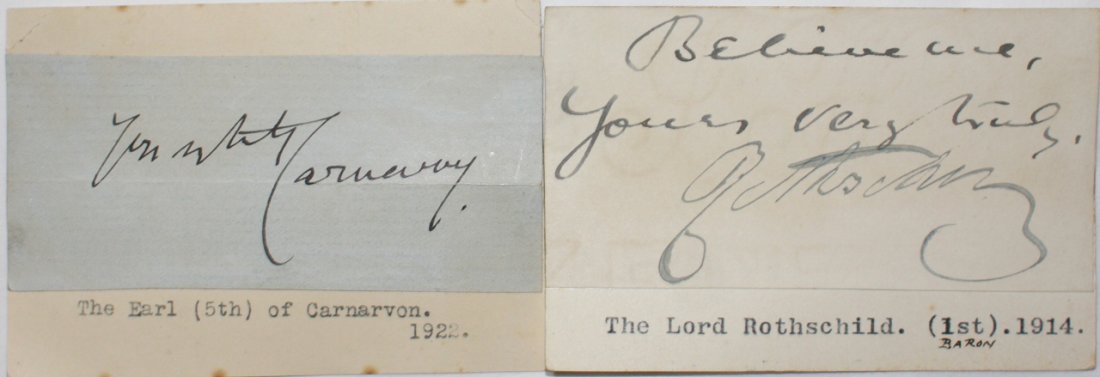 Yours truly
Carnarvon.
The Earl (5th) of Carnarvon.
1922.
Believe me,
Yours very truly.
Rothschild
The Lord Rothschild. (1st).1914.
BARON